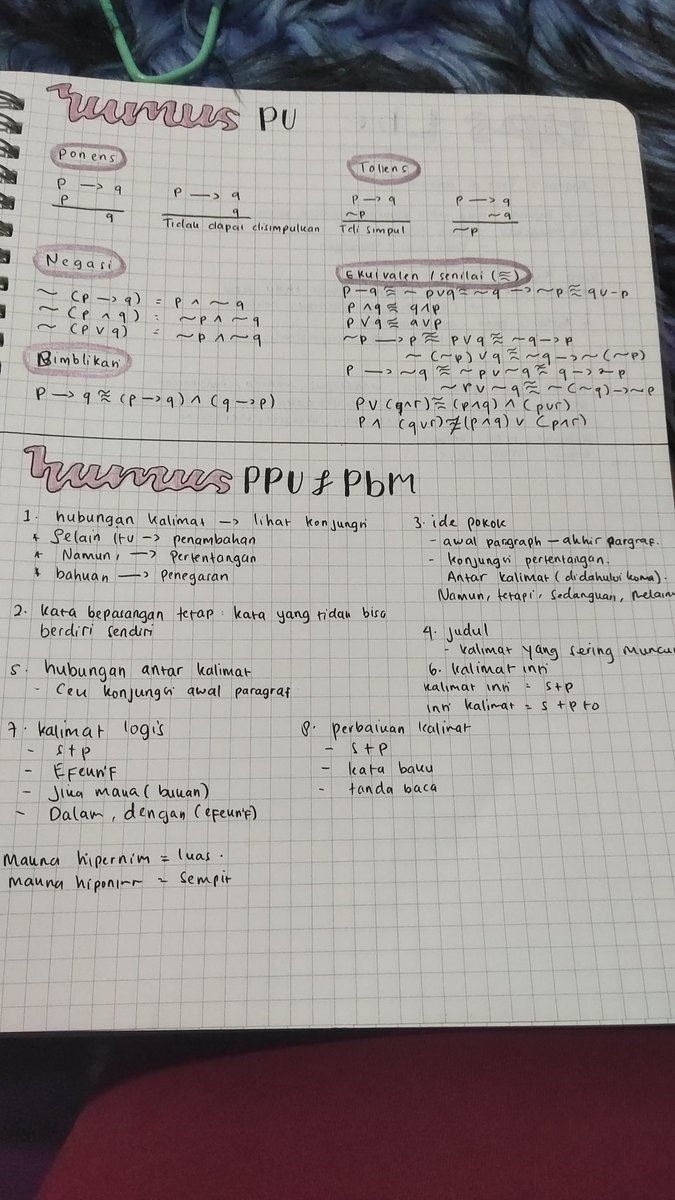 rumus PU
Ponens
p —> q
p
q
p —> q
q
Tidak dapat disimpulkan
Tollens
p —> q
~p
Tdi simpul
p —> q
~q
~p
Negasi
~ (p —> q) = p ∧ ~q
~ (p ∧ q) = ~p ∧ ~q
~ (p ∨ q) = ~p ∧ ~q
Bimblikan
p —> q ≈ (p —> q) ∧ (q —> p)
Ekuivalen / senilai (≈)
p - q ≈ ~ p∨q ≈ ~q -> ~p ≈ q∨-p
p ∧ q ≈ q∧p
p ∨ q ≈ q∨p
~p —> p ≈ p∨q ≈ ~q —> p
~ (~p) ∨ q ≈ ~q —> ~(~p)
p —> ~q ≈ ~p ∨ ~q ≈ q —> ~p
~p∨ ~q ≈ ~(~q) —> ~p
p∨ (q∧r) ≈ (p∧q) ∧ (p∨r)
p∧ (q∨r) ≉ (p∧q) ∨ (p∧r)
rumus PPU & PbM
1. hubungan kalimat —> lihat konjungsi
* Selain itu —> penambahan
* Namun, —> Pertentangan
* bahkan —> Penegasan
2. kata bepasangan tetap : kata yang tidak bisa
berdiri sendiri
3. ide pokok
- awal paragraph — akhir pargraf.
- konjungsi pertentangan.
Antar kalimat (didahului koma).
Namun, tetapi, sedangkan, melain
4. judul
- kalimat yang sering muncu
5. hubungan antar kalimat
- Cek konjungsi awal paragraf
6. kalimat inti
kalimat inti = s+p
inti kalimat = s +p+o
7. kalimat logis
- s+p
- Efektif
- Jika maka (bukan)
- Dalam, dengan (efektif)
8. perbaikan kalimat
- s+p
- kata baku
- tanda baca
Makna hipernim = luas .
Makna hiponim = sempit